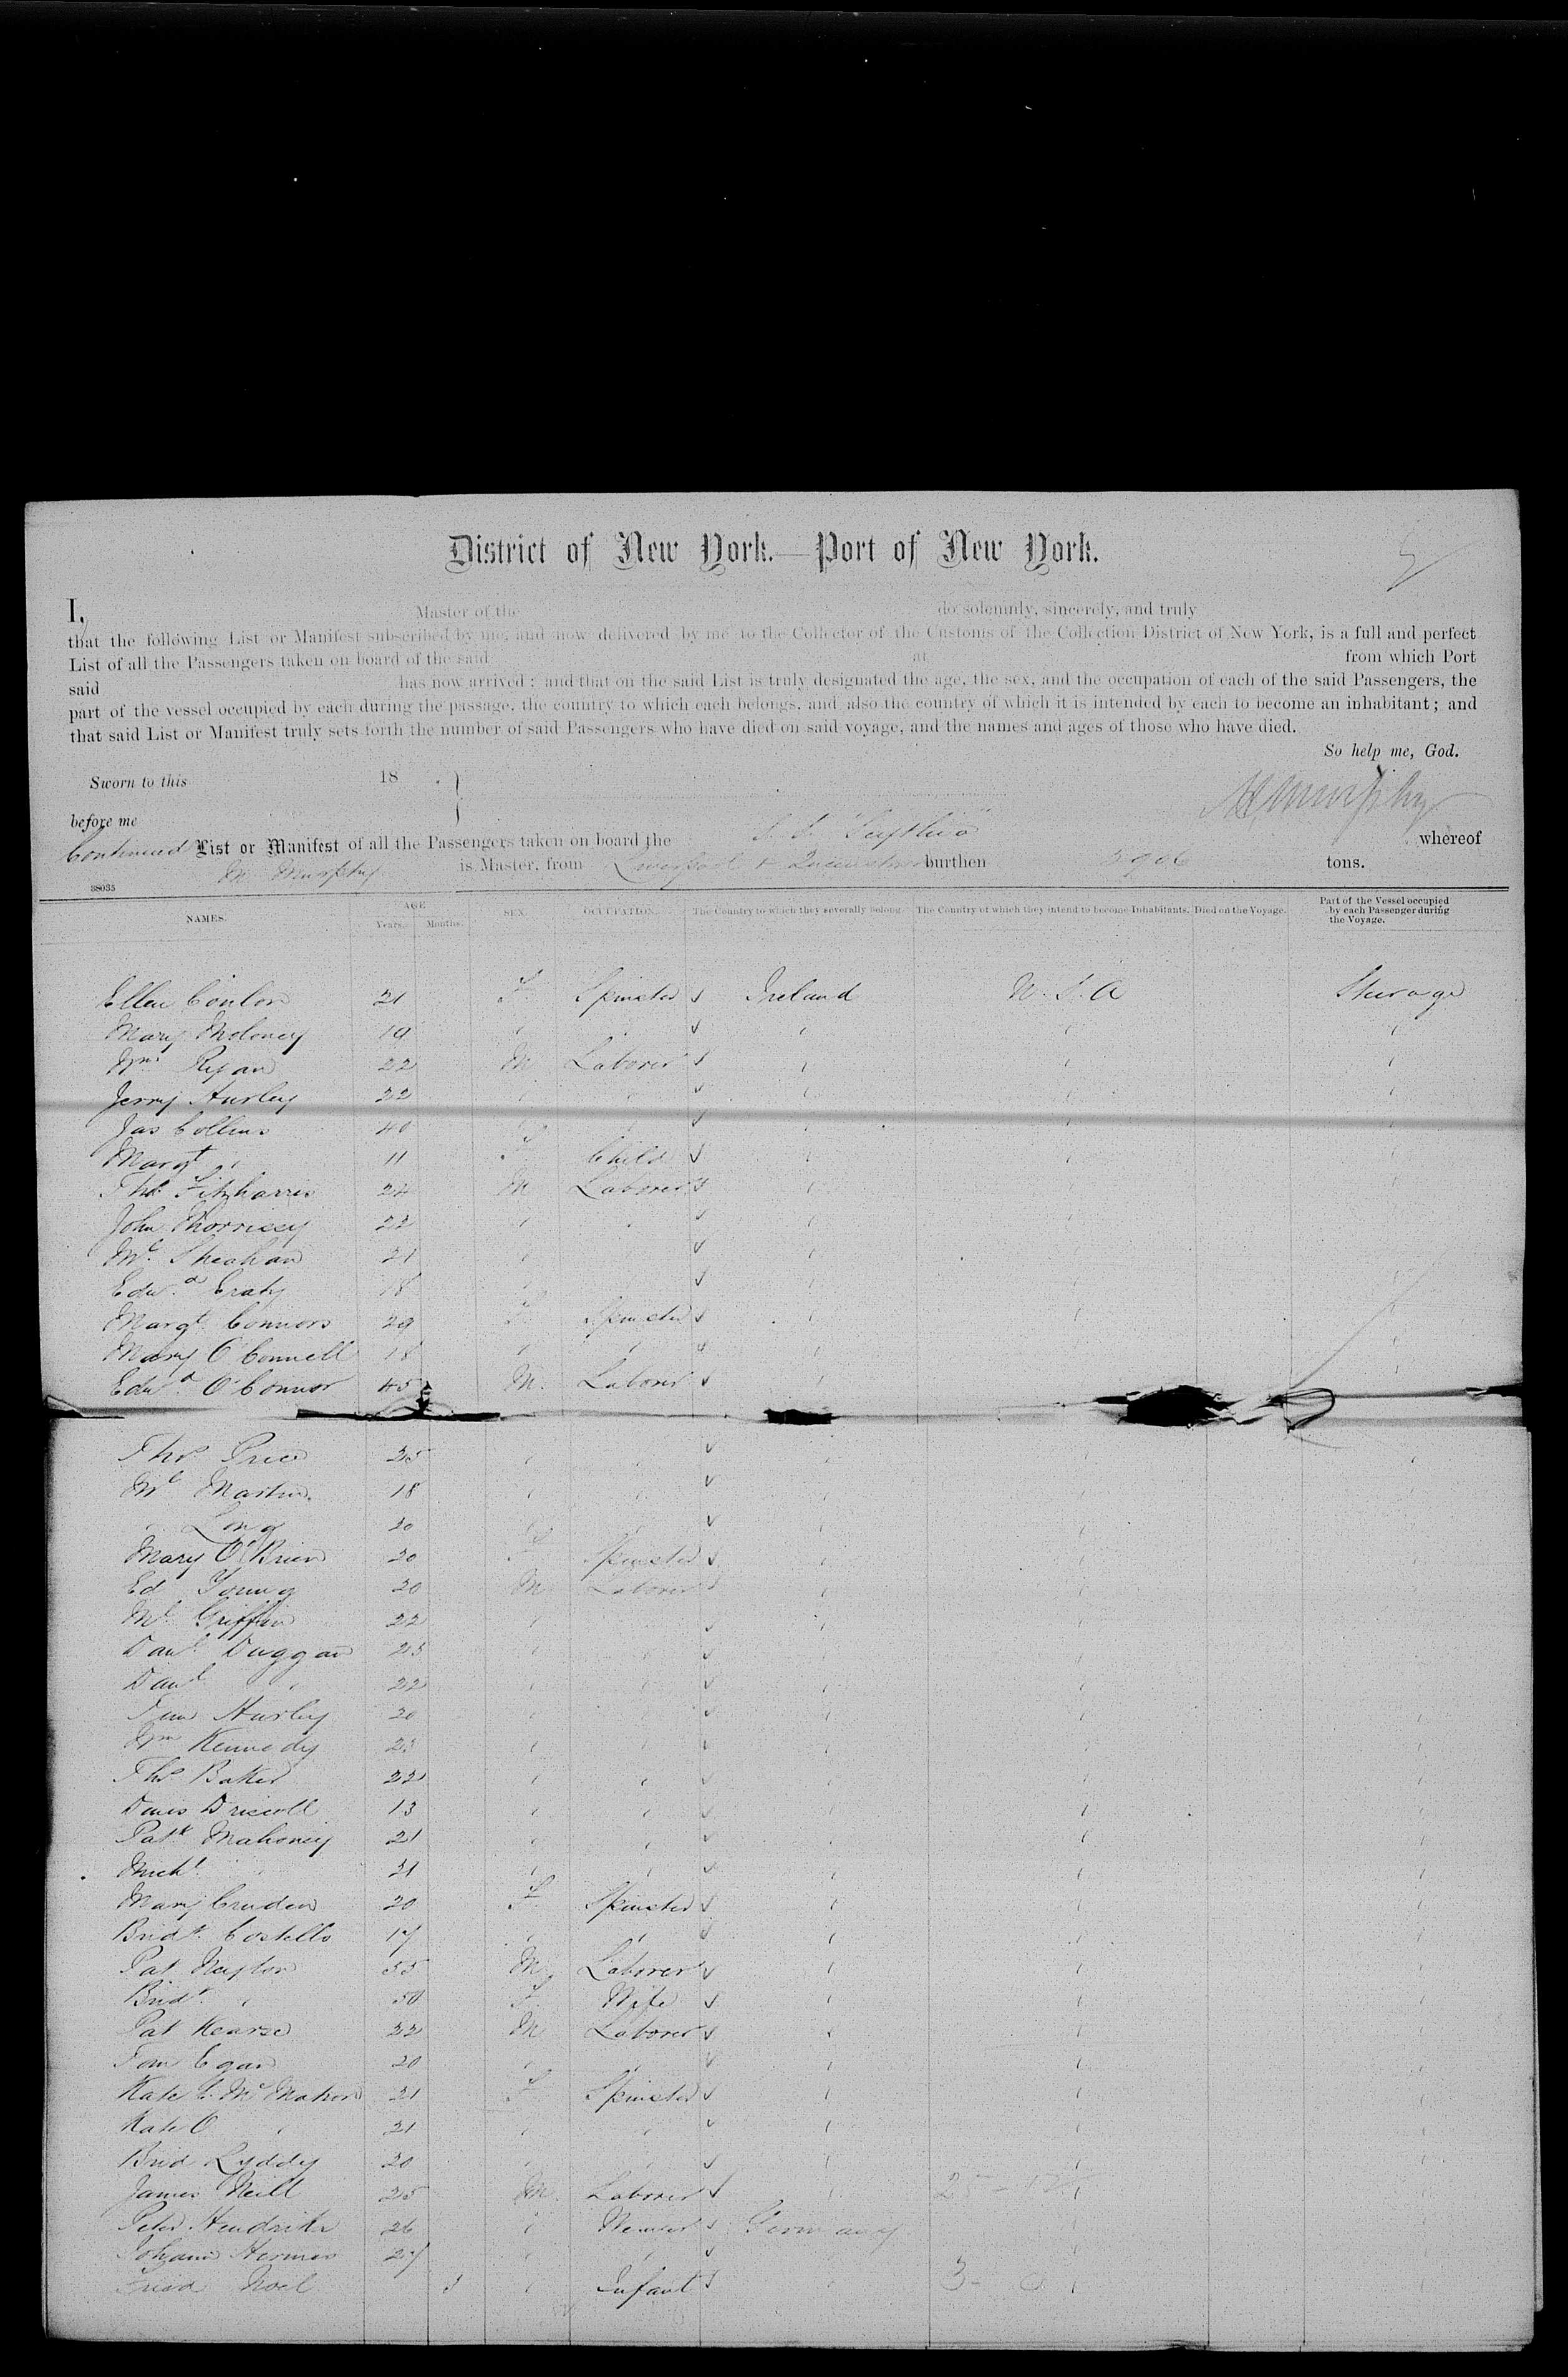 District of New York.—Port of New York.
I, Master of the do solemnly, sincerely, and truly
that the following List or Manifest subscribed by me, and now delivered by me to the Collector of the Customs of the Collection District of New York, is a full and perfect
List of all the Passengers taken on board of the said at from which Port
said has now arrived; and that on the said List is truly designated the age, the sex, and the occupation of each of the said Passengers, the
part of the vessel occupied by each during the passage, the country to which each belongs, and also the country of which it is intended by each to become an inhabitant; and
that said List or Manifest truly sets forth the number of said Passengers who have died on said voyage, and the names and ages of those who have died.
So help me, God.
Sworn to this 18 .
before me
Murphy
Continued List or Manifest of all the Passengers taken on board the S. S. Scythia whereof
M Murphy is Master, from Liverpool + Queenstown burthen tons.
38035
NAMES. AGE Years. Months. SEX. OCCUPATION. The Country to which they severally belong. The Country of which they intend to become Inhabitants. Died on the Voyage. Part of the Vessel occupied by each Passenger during the Voyage.
Ellen Conlon 21 F Spinster Ireland U.S.A Steerage
Mary Moloney 19 " " " " "
Wm Ryan 22 M Laborer " " "
Jerry Hurley 22 " " " " "
Jas Collins 40 " " " "
Margt " 11 F Child " "
Thos Fitzharris 24 M Laborer "
John 22 " " " "
Ml Sheahan 21 " "
Edwd 18 " " "
Margt Connors 29 F Spinster " "
Mary O'Connell 18 " " "
Edwd O'Connor 45 M. Laborer "
Thos Price 25 " " " " "
Ml Martin 18 " " " "
" Long 20 " " "
Mary O'Brien 20 F Spinster " "
Ed Young 20 M Laborer " "
Ml Griffin 22 " " "
Danl Duggan 23 " " " "
Danl " 22 " " " "
Tim Hurley 20 " " " "
Wm Kennedy 23 " " "
Thos Baker 22 " " " "
Denis Driscoll 13 " " " "
Patk Mahoney 21 " " " "
Michl " 21 " " " "
Mary Cruden 20 F Spinster " "
Bridt Costello 17 " " " "
Pat Naylon 55 M Laborer " "
Bridt " 50 F Wife " "
Pat Kearse 22 M Laborer " "
Tom Egan 20 " " " "
Kate C. McMahon 21 F Spinster " "
Kate O " 21 " " " "
Brid Lyddy 20 " " " "
James Neill 25 M. Laborer " "
Peter Hendriks 26 " Weaver Germany "
Johann Hermes 27 " " "
Noel " Infant " "